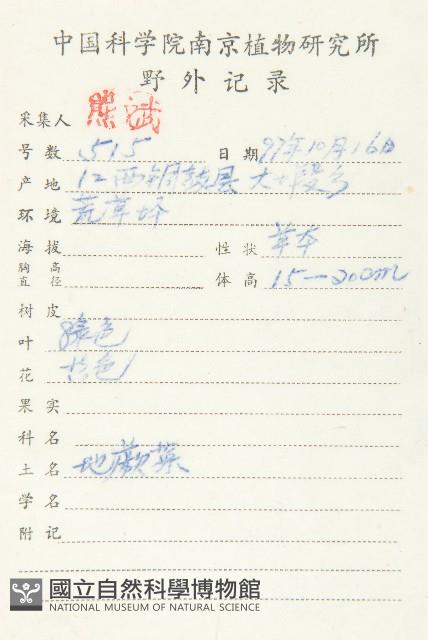 中国科学院南京植物研究所
野外记录
采集人 熊斌
号数 515 日期 97年10月16日
产地 江西铜鼓县大段乡
环境 荒草坪
海拔 性状 草本
胸高直径 体高 15—20cm
树皮
叶 绿色
花
果实
科名
土名 地蕨菜
学名
附记
國立自然科學博物館
NATIONAL MUSEUM OF NATURAL SCIENCE